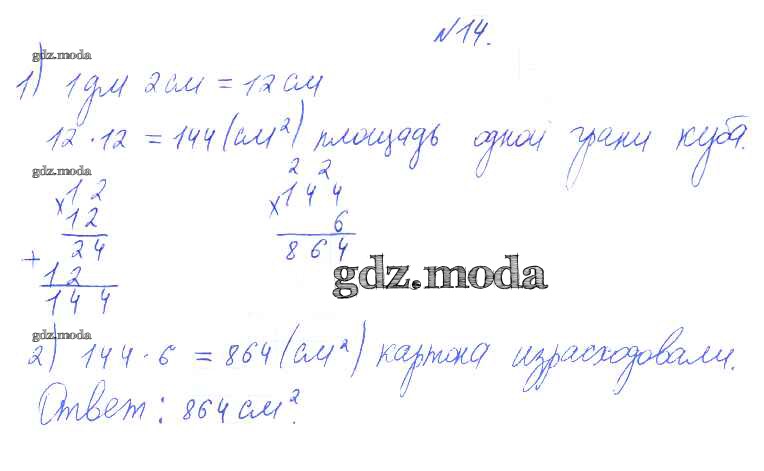 №14.
gdz.moda
1) 1дм 2см = 12см
12 · 12 = 144 (см²) площадь одной грани куба.
gdz.moda
2 2
× 12 × 144
12 6
24 864
+
12
144
gdz.moda
gdz.moda
2) 144 · 6 = 864 (см²) картона израсходовали.
Ответ: 864 см².